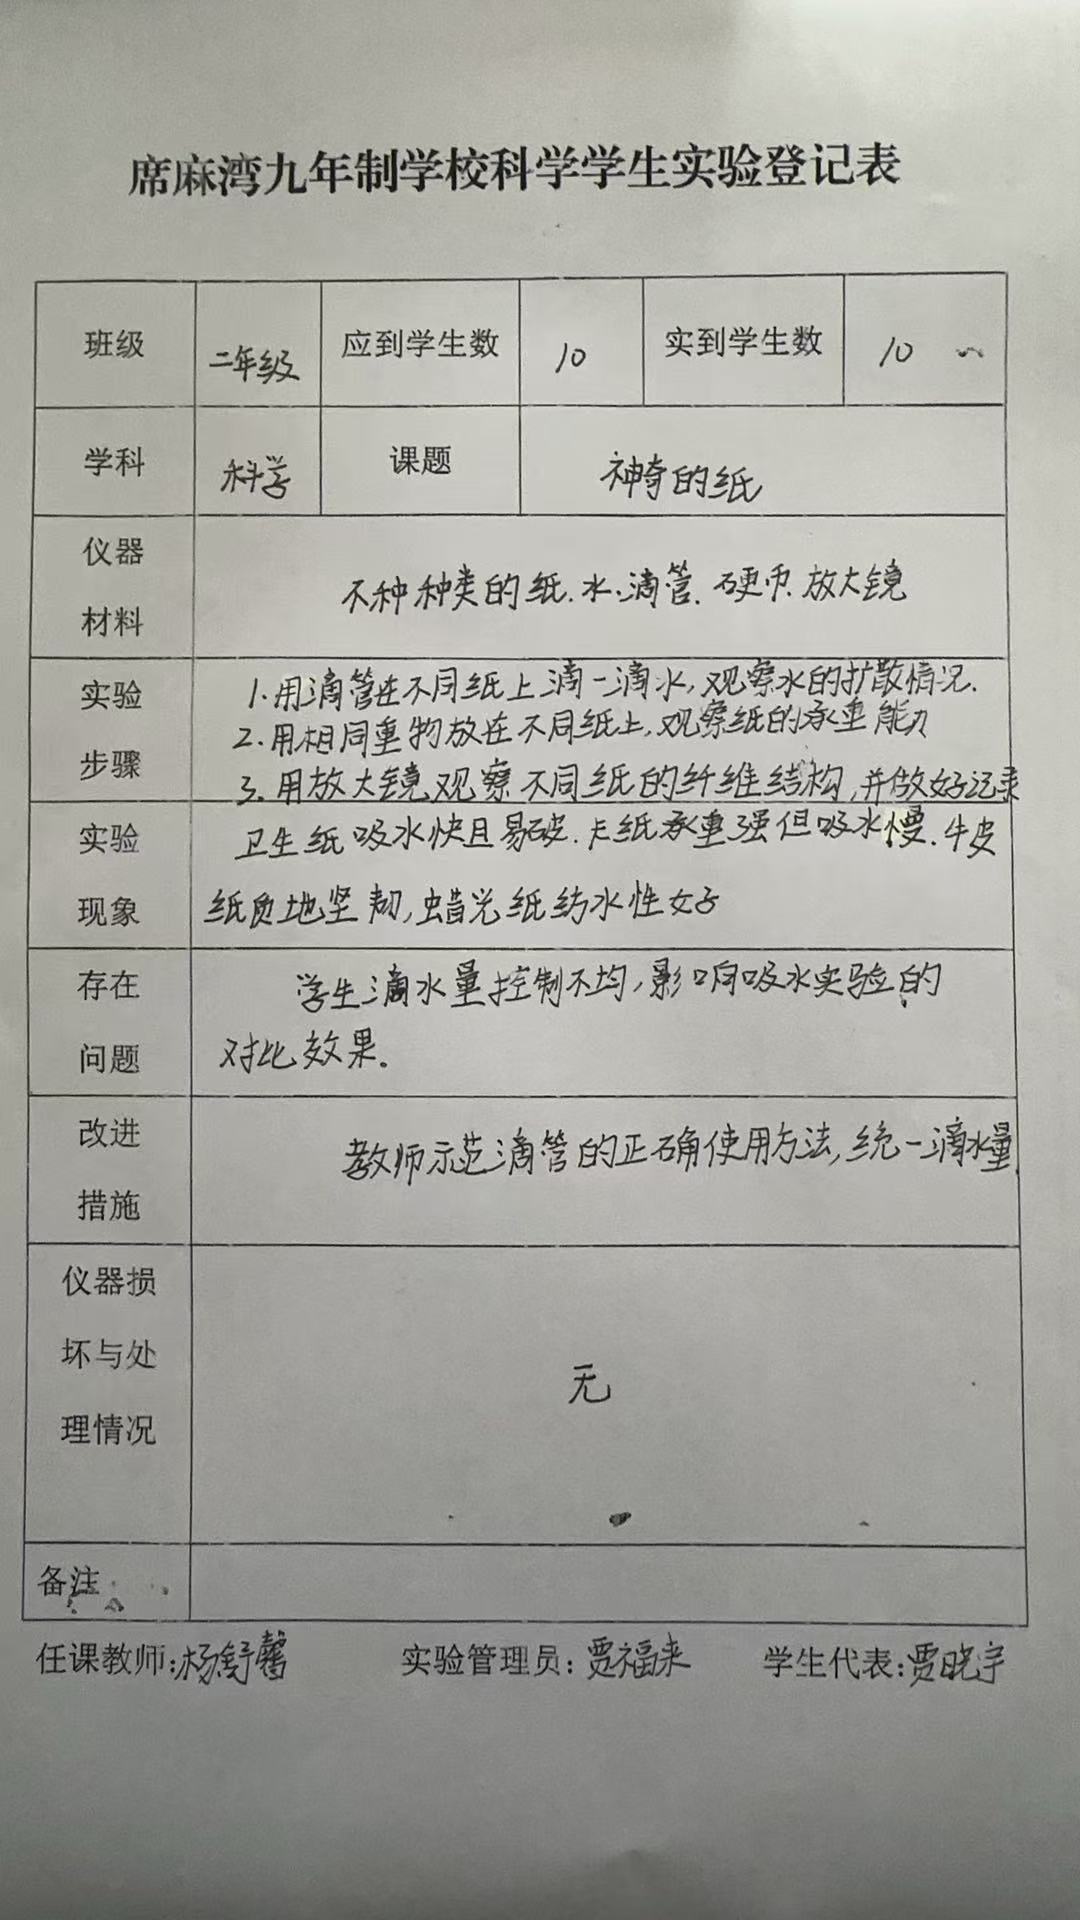 席麻湾九年制学校科学学生实验登记表
班级 二年级 应到学生数 10 实到学生数 10
学科 科学 课题 神奇的纸
仪器
材料
不种种类的纸.水.滴管.硬币.放大镜
实验
步骤
1.用滴管在不同纸上滴一滴水,观察水的扩散情况.
2.用相同重物放在不同纸上,观察纸的承重能力
3.用放大镜观察不同纸的纤维结构,并做好记录
实验
现象
卫生纸吸水快且易破.卡纸承重强但吸水慢.牛皮
纸质地坚韧,蜡光纸纺水性好
存在
问题
学生滴水量控制不均,影响吸水实验的
对比效果.
改进
措施
教师示范滴管的正确使用方法,统一滴水量.
仪器损
坏与处
理情况
无
备注
任课教师:杨舒馨 实验管理员:贾福来 学生代表:贾晓宇